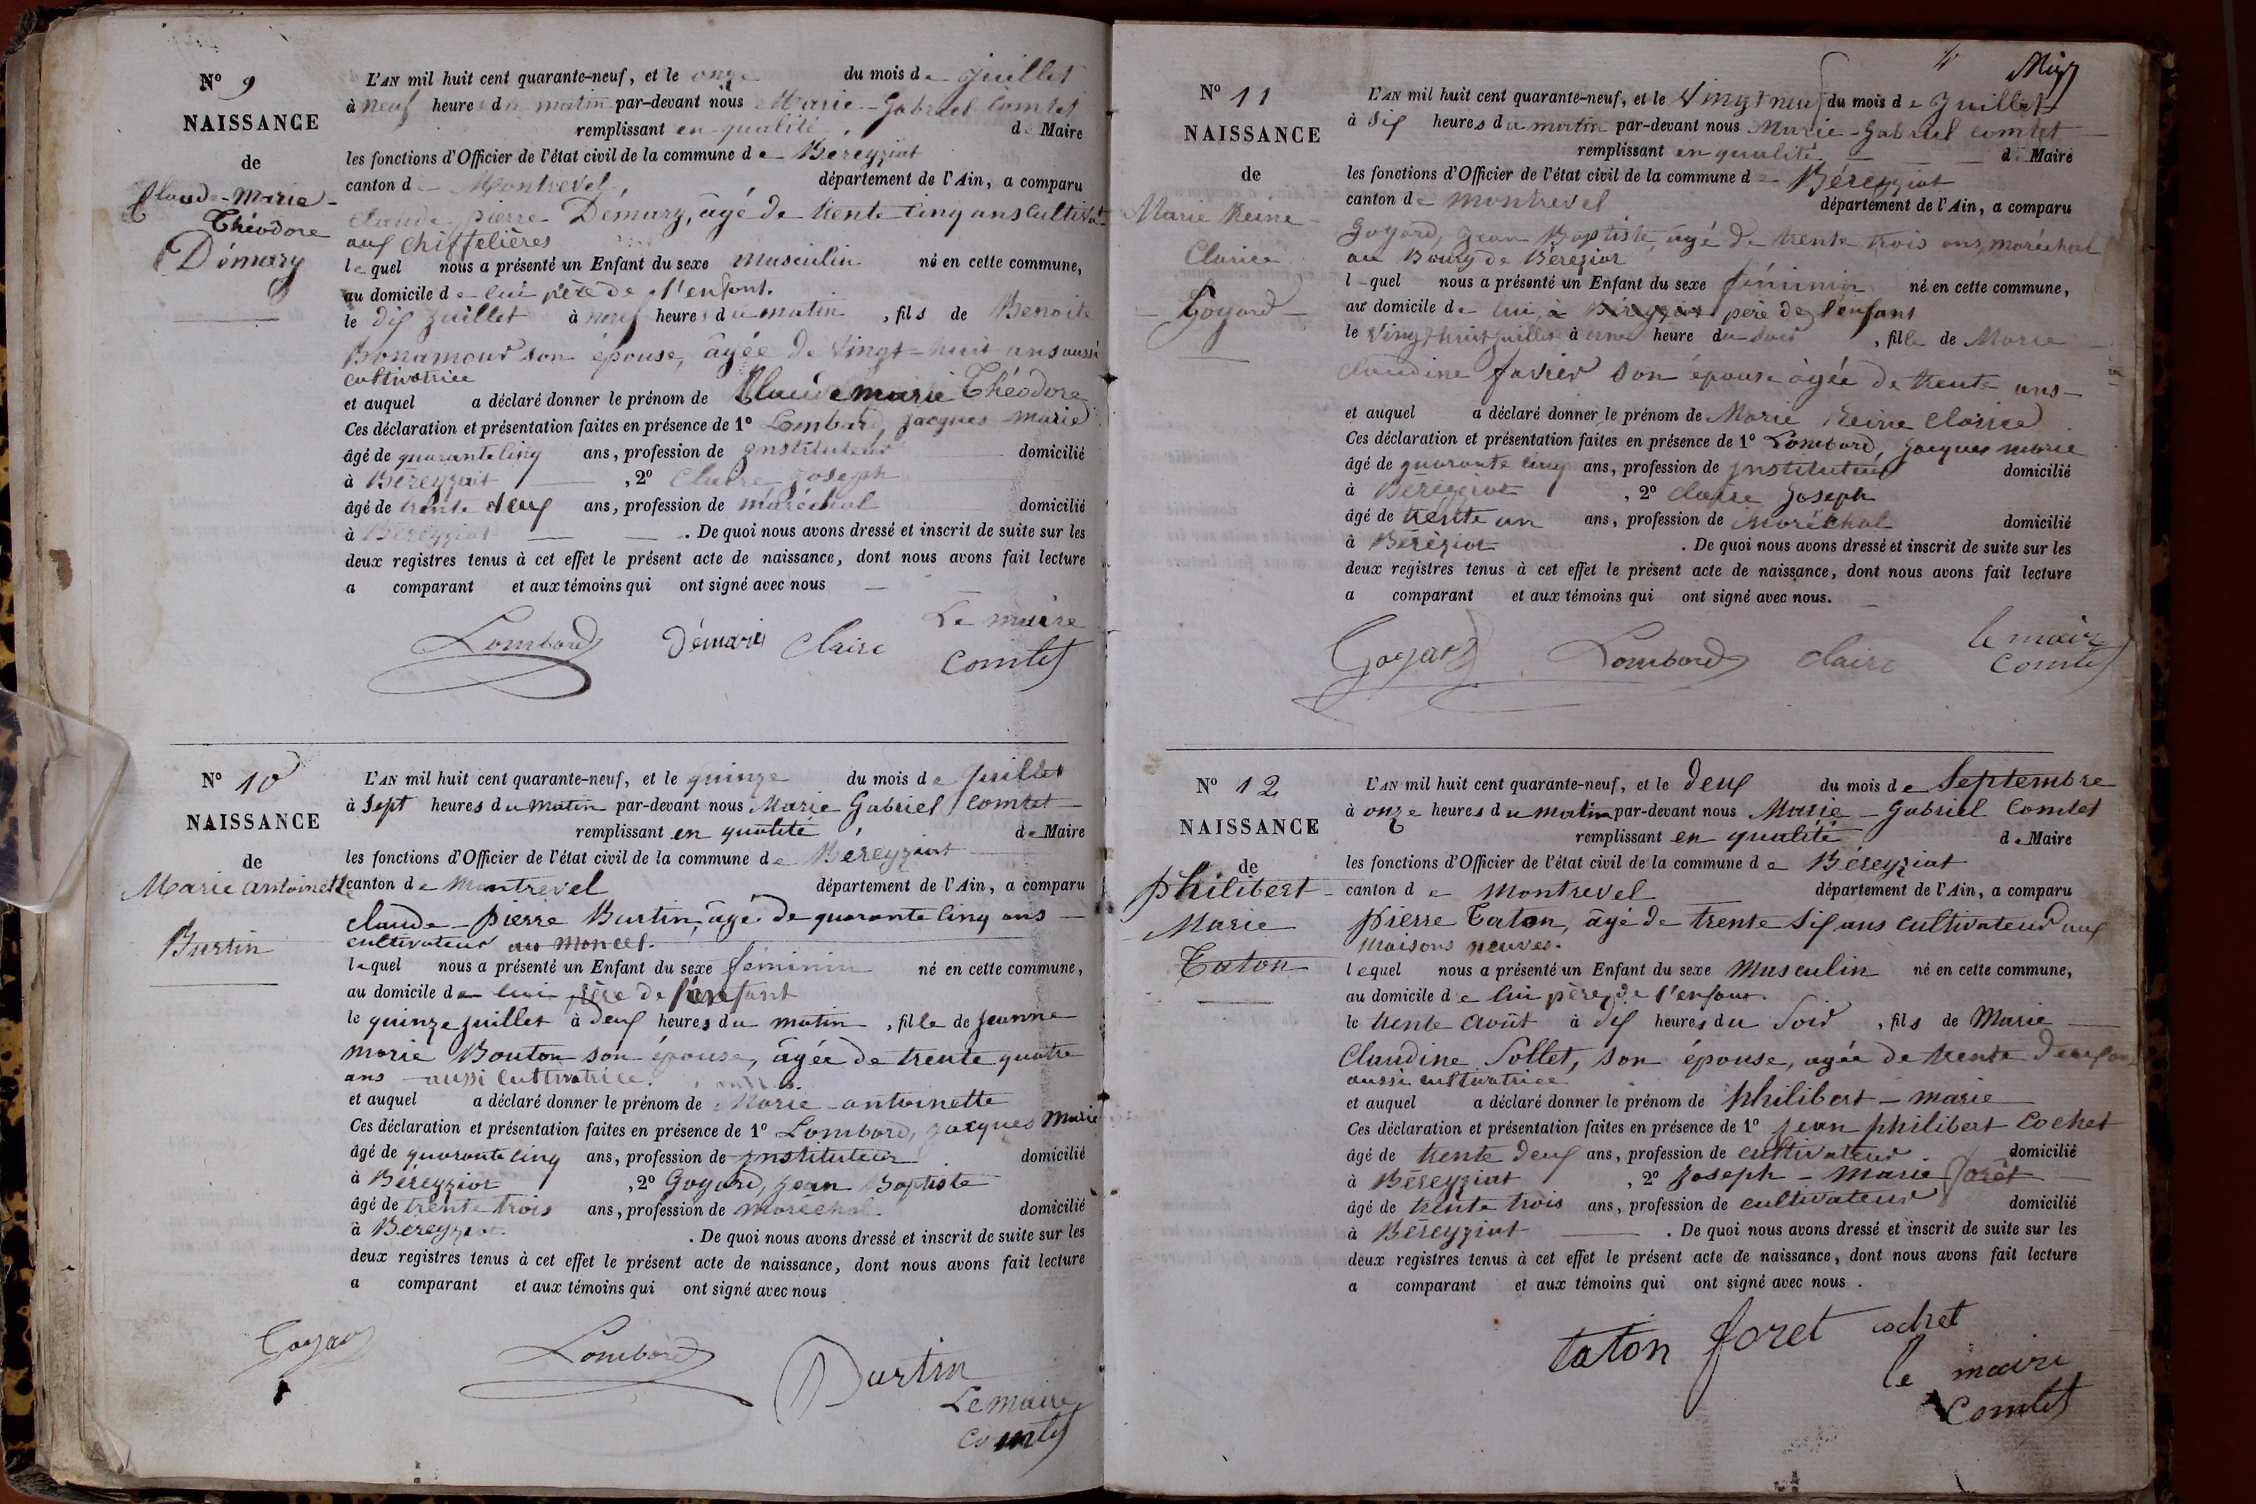 Nº 9
NAISSANCE
de
Claude-Marie-
Théodore
Démary
L'AN mil huit cent quarante-neuf, et le onze du mois de Juillet
à neuf heures du matin par-devant nous Marie-Gabriel Comtet
remplissant en qualité de Maire
les fonctions d'Officier de l'état civil de la commune de Béreyziat
canton de Montrevel, département de l'Ain, a comparu
Claude-pierre-Démary, âgé de trente Cinq ans Cultivat
aux Chiffelières
lequel nous a présenté un Enfant du sexe masculin né en cette commune,
au domicile de lui père de l'enfant.
le dix Juillet à neuf heures du matin, fils de Benoite
Bonamour son épouse, âgée de vingt-huit ans aussi
cultivatrice
et auquel a déclaré donner le prénom de Claude marie Théodore
Ces déclaration et présentation faites en présence de 1º Lombard, Jacques Marie
âgé de quarante cinq ans, profession de Instituteur domicilié
à Béreyziat, 2º Claire Joseph
âgé de trente deux ans, profession de maréchal domicilié
à Béreyziat. De quoi nous avons dressé et inscrit de suite sur les
deux registres tenus à cet effet le présent acte de naissance, dont nous avons fait lecture
a comparant et aux témoins qui ont signé avec nous
Lombard Démaris Claire Le maire
Comtet
Nº 10
NAISSANCE
de
Marie antoinette
Burtin
L'AN mil huit cent quarante-neuf, et le quinze du mois de Juillet
à Sept heures du matin par-devant nous Marie Gabriel Comtet
remplissant en qualité de Maire
les fonctions d'Officier de l'état civil de la commune de Béreyziat
canton de Montrevel département de l'Ain, a comparu
Claude-pierre Burtin, âgé de quarante Cinq ans
cultivateur au Moncel.
lequel nous a présenté un Enfant du sexe féminin né en cette commune,
au domicile de lui père de l'enfant
le quinze juillet à deux heures du matin, fille de Jeanne
marie Bouton son épouse, âgée de trente quatre
ans aussi cultivatrice.
et auquel a déclaré donner le prénom de Marie-antoinette
Ces déclaration et présentation faites en présence de 1º Lombard, Jacques Marie
âgé de quarante cinq ans, profession de Instituteur domicilié
à Béreyziat, 2º Goyard, Jean Baptiste
âgé de trente trois ans, profession de maréchal domicilié
à Béreyziat. De quoi nous avons dressé et inscrit de suite sur les
deux registres tenus à cet effet le présent acte de naissance, dont nous avons fait lecture
a comparant et aux témoins qui ont signé avec nous
Goyard Lombard Burtin
Le maire
Comtet
4
Nº 11
NAISSANCE
de
Marie Reine
Clarice
Goyard
L'AN mil huit cent quarante-neuf, et le vingt neuf du mois de Juillet
à Six heures du matin par-devant nous Marie-Gabriel Comtet
remplissant en qualité de Maire
les fonctions d'Officier de l'état civil de la commune de Béreyziat
canton de Montrevel département de l'Ain, a comparu
Goyard, Jean Baptiste, âgé de trente trois ans, maréchal
au Bourg de Béréziat
l quel nous a présenté un Enfant du sexe féminin né en cette commune,
au domicile de lui, à Béreyziat père de l'enfant
le vingt huit juillet à une heure du soir, fille de Marie
Claudine favier son épouse âgée de trente ans
et auquel a déclaré donner le prénom de Marie Reine Clarice
Ces déclaration et présentation faites en présence de 1º Lombard, Jacques marie
âgé de quarante cinq ans, profession de Instituteur domicilié
à Béreyziat, 2º Claire Joseph
âgé de trente un ans, profession de Maréchal domicilié
à Béréziat. De quoi nous avons dressé et inscrit de suite sur les
deux registres tenus à cet effet le présent acte de naissance, dont nous avons fait lecture
a comparant et aux témoins qui ont signé avec nous.
Goyard Lombard Claire le maire
Comtet
Nº 12
NAISSANCE
de
philibert-
Marie
Taton
L'AN mil huit cent quarante-neuf, et le deux du mois de Septembre
à onze heures du matin par-devant nous Marie-Gabriel Comtet
remplissant en qualité de Maire
les fonctions d'Officier de l'état civil de la commune de Béreyziat
canton de Montrevel département de l'Ain, a comparu
pierre Taton, âgé de trente Six ans Cultivateur aux
maisons neuves.
lequel nous a présenté un Enfant du sexe Masculin né en cette commune,
au domicile de lui père de l'enfant.
le trente août à dix heures du Soir, fils de Marie
Claudine Sottet, son épouse, âgée de trente deux ans
aussi cultivatrice
et auquel a déclaré donner le prénom de philibert-marie
Ces déclaration et présentation faites en présence de 1º Jean philibert Cochet
âgé de trente deux ans, profession de cultivateur domicilié
à Béreyziat, 2º Joseph-Marie forêt
âgé de trente trois ans, profession de cultivateur domicilié
à Béreyziat. De quoi nous avons dressé et inscrit de suite sur les
deux registres tenus à cet effet le présent acte de naissance, dont nous avons fait lecture
a comparant et aux témoins qui ont signé avec nous.
taton foret cochet
le maire
Comtet